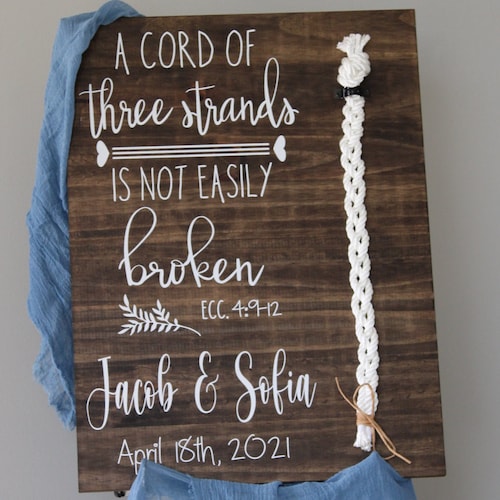 A CORD OF
three strands
IS NOT EASILY
broken
ECC. 4:9-12
Jacob & Sofia
April 18th, 2021